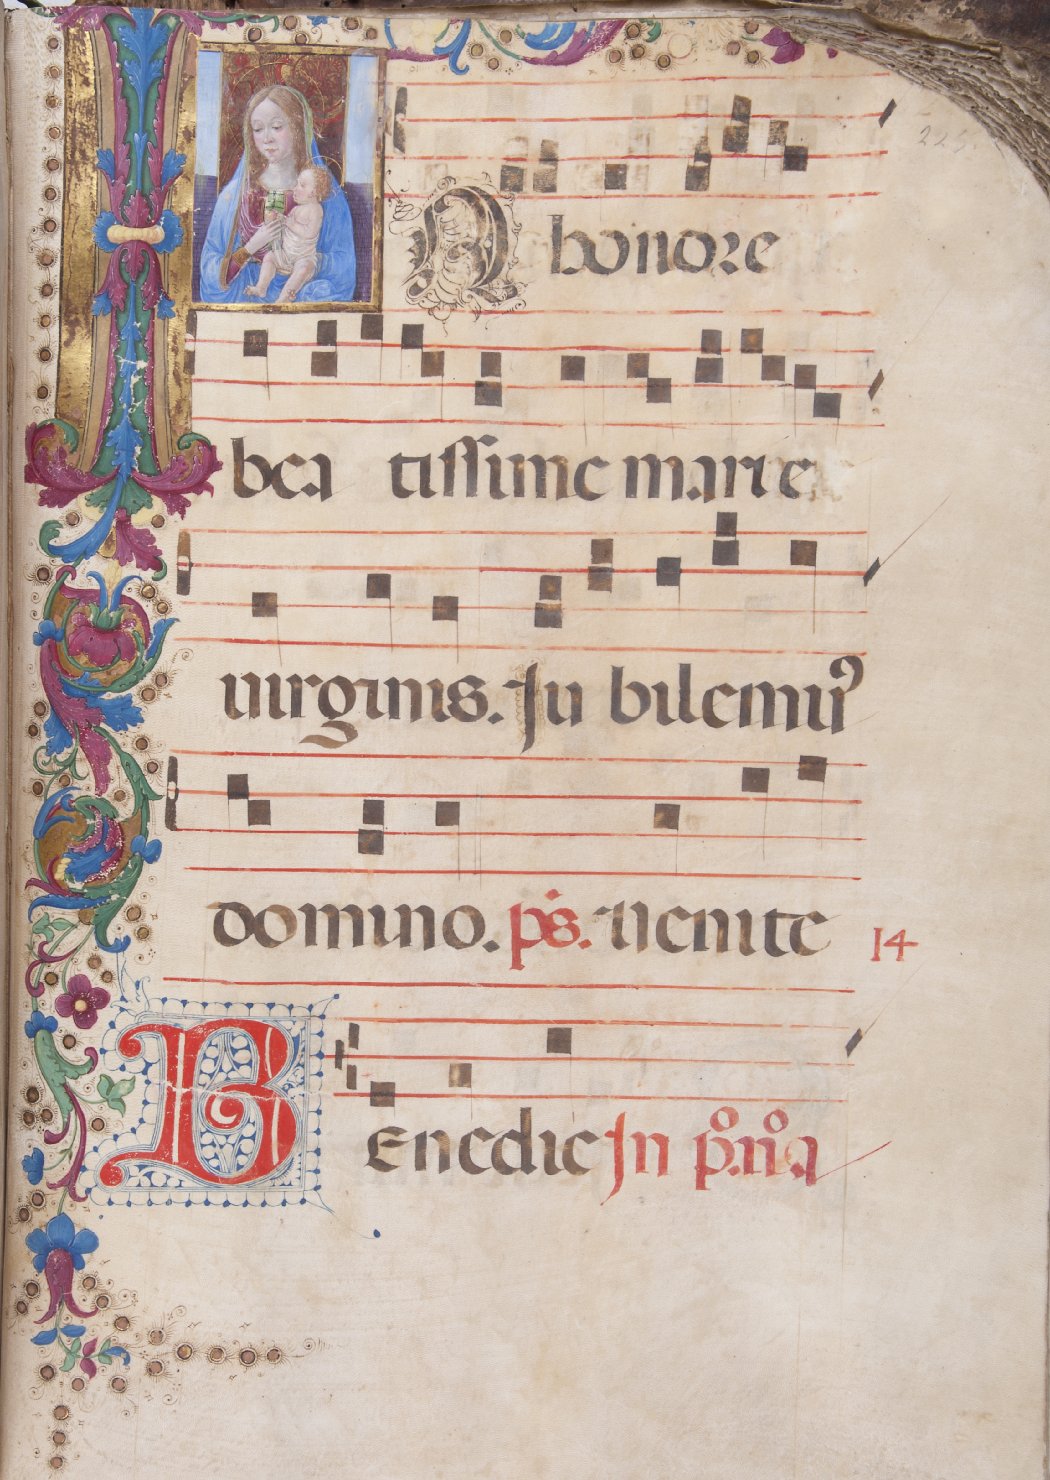 225
IN honore
bea tissime marie
uirginis. Ju bilemuꝰ
domino. p̄s. Uenite
14
Benedic Jn pº. nº. a